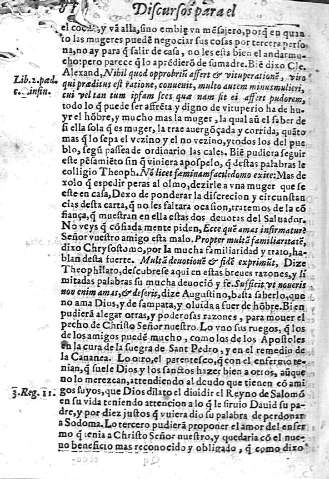 Discursos para el
el coche, y vá allà, sino embie vn mésajero, porq̃ en quan
to las mugeres puedẽ negociar sus cosas por tercera perso
na, no ay para q̃ salir de casa, no les està bien el andar mu-
cho: pero parece q̃ lo aprẽdierõ de su madre. Biẽ dixo Cle.
Lib. 2. pad. Alexand, Nihil quod opprobrij affert & vituperationis, viro
qui præditus est ratione, conuenit, multo autem minus mulieri,
cui vel tantum ipsam secum qua nam sit ei affert pudorem,
todo lo q̃ puede ser afrẽta y digno de vituperio ha de hu-
yr el hõbre, y mucho mas la muger, la qual aũ el saber de
si ella sola q̃ es muger, la trae auergõçada y corrida, quãto
mas q̃ lo sepa el vezino y el no vezino, y todos los del pue
blo, segũ passea de ordinario las calles. Biẽ pudiera seguir
este pẽsamiẽto sin q̃ viniera apospelo, q̃ destas palabras le
colligio Theoph. Nõ licet feminam facilè domo exire: Mas de
xolo q̃ espedir peras al olmo, dezirle a vna muger que se
este en casa, Dexo de ponderar la discrecion, y circunstan
cias desta carta, q̃ no les faltara ocasion, tratemos de la cõ
fiança, q̃ muestran en ella estas dos deuotas del Saluador.
No veys q̃ cõfiada mente piden, Ecce quẽ amas infirmatur
Señor vuestro amigo esta malo. Propter multã familiaritatẽ,
dixo Chrysostomo, por la mucha familiaridad y trato, ha-
blan desta suerte. Multã deuotionẽ & fidẽ exprimũt, Dize
Theophilato, descubrese aqui en estas breues razones, y li
mitadas palabras su mucha deuociõ y fe. Sufficit vt noueris
non enim amas, & deseris, dize Augustino, basta saberlo, que
no ama Dios, y desampara, y oluida a su ser de hõbre. Bien
pudierã alegar otras, y poderosas razones, para mouer el
pecho de Christo Señor nuestro. Lo vno sus ruegos, q̃ los
de los amigos puedẽ mucho, como los de los Apostoles
en la cura de la suegra de Sant Pedro, y en el remedio de
la Cananea. Lo otro, el parentesco, q̃ con el enfermo te-
nian, q̃ suele Dios y los sanctos hazer bien a otros, aũque
no lo merezcan, attendiendo al deudo que tienen cõ ami
3. Reg. 11. gos suyos, que Dios dilato el diuidir el Reyno de Salomõ
en su vida teniendo attencion a lo q̃ le siruio Dauid su pa-
dre, y por diez justos q̃ vuiera dio su palabra de perdonar
a Sodoma. Lo tercero pudierã proponer el amor del enfer
mo q̃ tenia a Christo Señor nuestro, y quedaria cõ el nue-
uo beneficio mas reconocido y obligado, q̃ como dixo